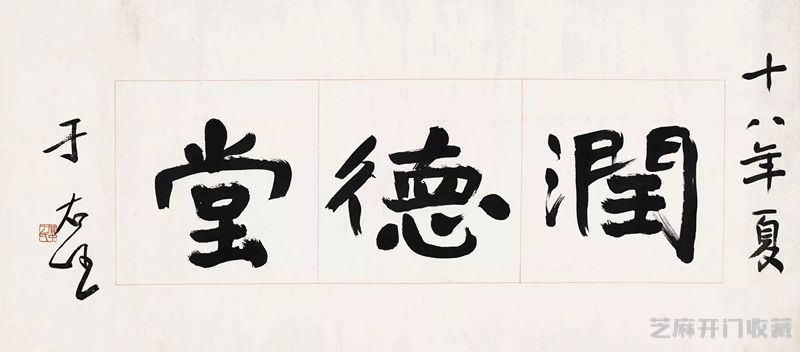 十八年夏
潤德堂
于右任
芝麻开门收藏